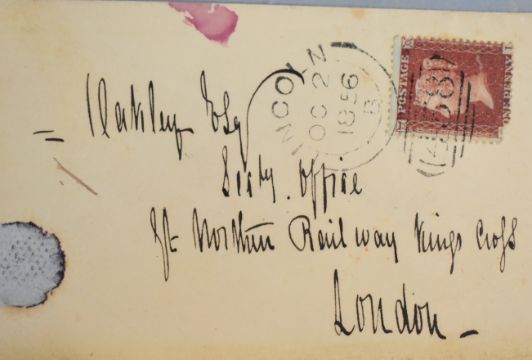 POSTAGE
ONE PENNY
LINCOLN
OC 22
1856
B
458
= Oakley Esq
Secty. Office
Gt Northern Railway Kings Cross
London -